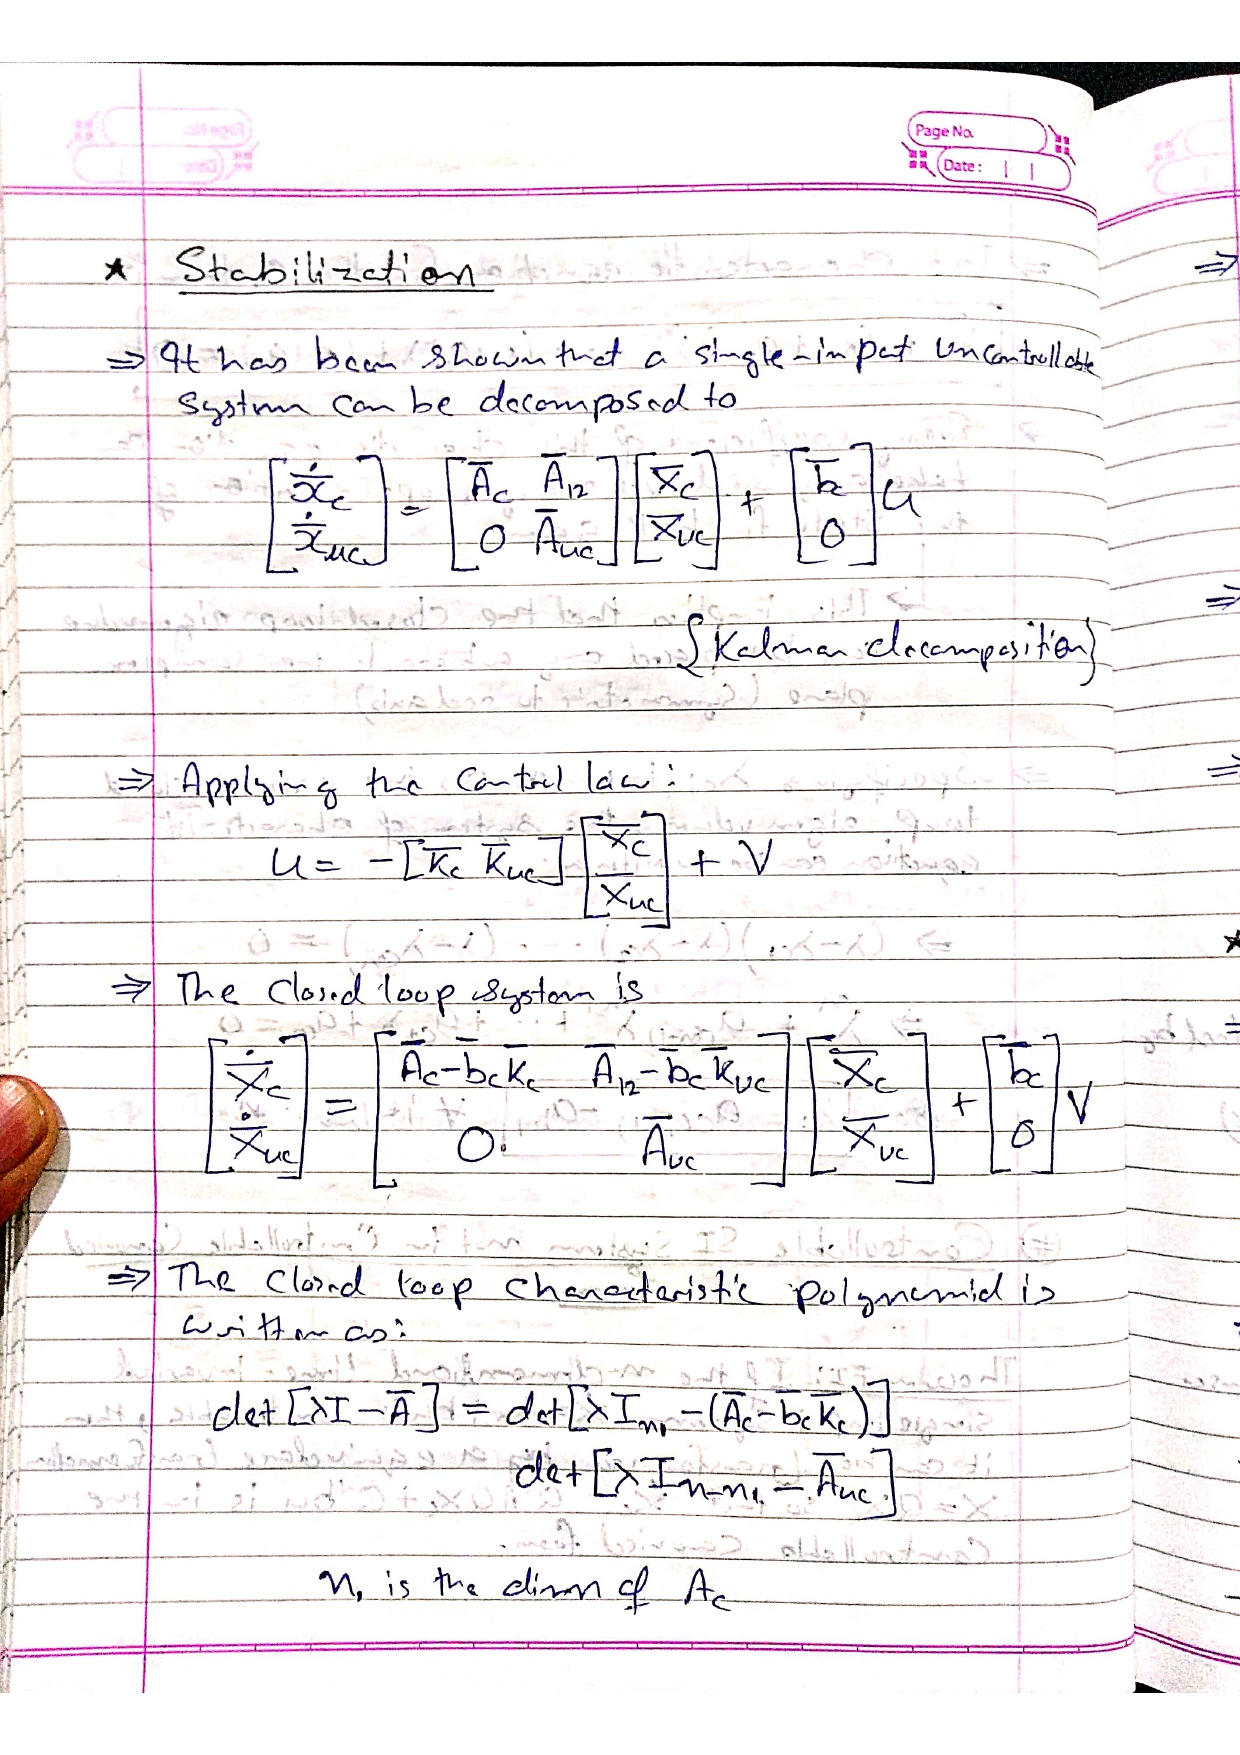 Page No.
Date:
★ Stabilization
⇒ It has been shown that a single-input uncontrollable
system can be decomposed to
[ẋ̄c; ẋ̄uc] = [Āc Ā12; 0 Āuc] [x̄c; x̄uc] + [b̄c; 0] u
{Kalman decomposition}
⇒ Applying the control law:
u = -[k̄c k̄uc] [x̄c; x̄uc] + V
⇒ The closed loop system is
[ẋ̄c; ẋ̄uc] = [Āc-b̄c k̄c Ā12-b̄c k̄uc; 0 Āuc] [x̄c; x̄uc] + [b̄c; 0] V
⇒ The closed loop characteristic polynomial is
written as:
det[λI-Ā] = det[λIn1-(Āc-b̄c k̄c)]
det[λIn-n1-Āuc]
n1 is the dimn of Ac